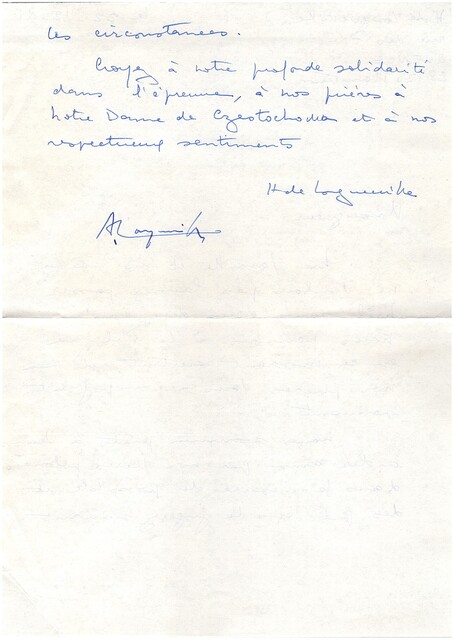 les circonstances.
Croyez à notre profonde solidarité
dans l'épreuve, à nos prières à
Notre Dame de Czestochowa et à nos
respectueux sentiments
H de